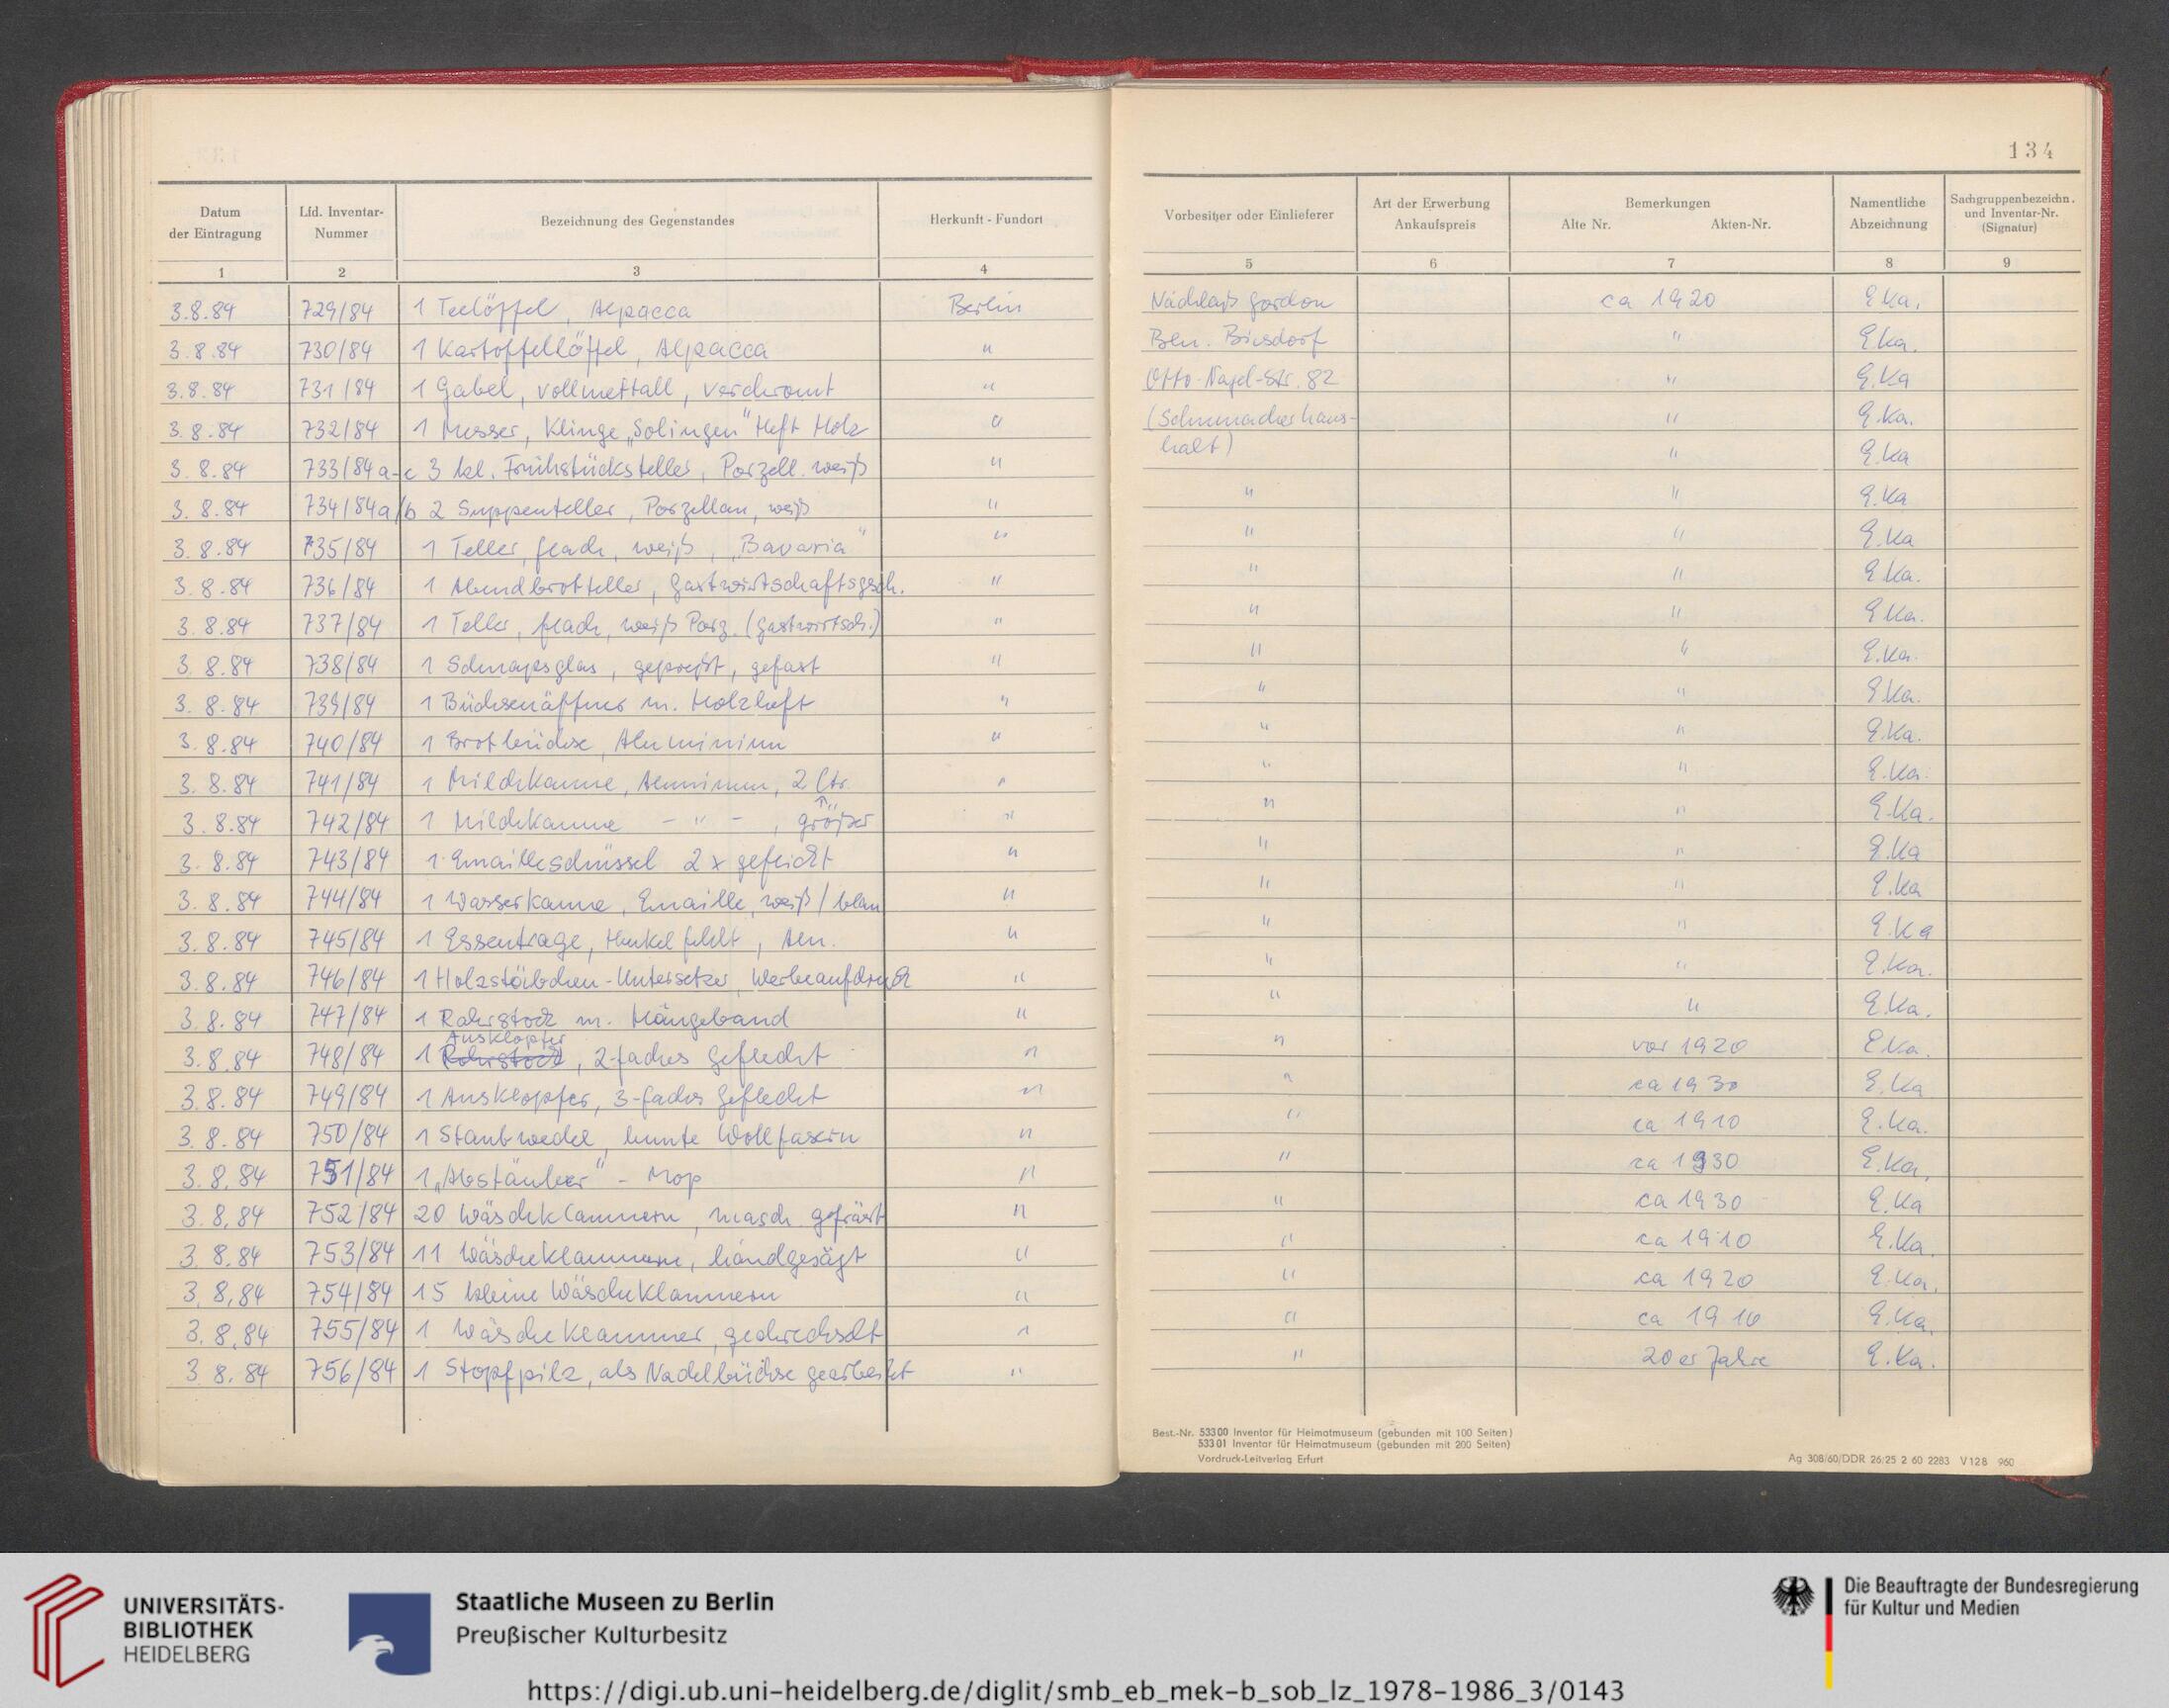 134
Datum der Eintragung | Lfd. Inventar-Nummer | Bezeichnung des Gegenstandes | Herkunft - Fundort | Vorbesitzer oder Einlieferer | Art der Erwerbung Ankaufspreis | Bemerkungen Alte Nr. Akten-Nr. | Namentliche Abzeichnung | Sachgruppenbezeichn. und Inventar-Nr. (Signatur)
1 | 2 | 3 | 4 | 5 | 6 | 7 | 8 | 9
3.8.84 | 729/84 | 1 Teelöffel, Alpacca | Berlin | Nachlaß Gordon | | ca 1920 | E.Ka.
3.8.84 | 730/84 | 1 Kartoffellöffel, Alpacca | " | Bln. Biesdorf | | " | E.Ka.
3.8.84 | 731/84 | 1 Gabel, vollmettall, verchromt | " | Otto-Nagel-Str. 82 | | " | E.Ka
3.8.84 | 732/84 | 1 Messer, Klinge „Solingen" Heft Holz | " | (Schumacherhaus- | | " | E.Ka.
3.8.84 | 733/84 a-c | 3 kl. Frühstücksteller, Porzell. weiß | " | halt) | | " | E.Ka
3.8.84 | 734/84 a/b | 2 Suppenteller, Porzellan, weiß | " | " | | " | E.Ka
3.8.84 | 735/84 | 1 Teller, flach, weiß, „Bavaria" | " | " | | " | E.Ka
3.8.84 | 736/84 | 1 Abendbrotteller, Gastwirtschaftsgsch. | " | " | | " | E.Ka.
3.8.84 | 737/84 | 1 Teller, flach, weiß Porz. (Gastwirtsch.) | " | " | | " | E.Ka.
3.8.84 | 738/84 | 1 Schnapsglas, gepreßt, gefast | " | " | | " | E.Ka.
3.8.84 | 739/84 | 1 Büchsenöffner m. Holzheft | " | " | | " | E.Ka.
3.8.84 | 740/84 | 1 Brotbüchse, Aluminium | " | " | | " | E.Ka.
3.8.84 | 741/84 | 1 Milchkanne, Aluminium, 2 Ltr. | " | " | | " | E.Ka.
3.8.84 | 742/84 | 1 Milchkanne - " - , größer | " | " | | " | E.Ka.
3.8.84 | 743/84 | 1 Emailleschüssel 2 x geflickt | " | " | | " | E.Ka
3.8.84 | 744/84 | 1 Wasserkanne, Emaille, weiß/blau | " | " | | " | E.Ka
3.8.84 | 745/84 | 1 Essentrage, Henkel fehlt, Alu. | " | " | | " | E.Ka
3.8.84 | 746/84 | 1 Holzstäbchen-Untersetzer, Werbeaufdruck | " | " | | " | E.Ka.
3.8.84 | 747/84 | 1 Rohrstock m. Hängeband | " | " | | " | E.Ka.
3.8.84 | 748/84 | 1 Rohrstock Ausklopfer, 2-faches Geflecht | " | " | | vor 1920 | E.Ka.
3.8.84 | 749/84 | 1 Ausklopfer, 3-faches Geflecht | " | " | | ca 1930 | E.Ka
3.8.84 | 750/84 | 1 Staubwedel, bunte Wollfasern | " | " | | ca 1910 | E.Ka.
3.8.84 | 751/84 | 1 „Abstäuber" - Mop | " | " | | ca 1930 | E.Ka.
3.8.84 | 752/84 | 20 Wäscheklammern, masch. gefräst | " | " | | ca 1930 | E.Ka
3.8.84 | 753/84 | 11 Wäscheklammern, handgesägt | " | " | | ca 1910 | E.Ka.
3.8.84 | 754/84 | 15 kleine Wäscheklammern | " | " | | ca 1920 | E.Ka.
3.8.84 | 755/84 | 1 Wäscheklammer, gedrechselt | " | " | | ca 1910 | E.Ka.
3.8.84 | 756/84 | 1 Stopfpilz, als Nadelbüchse gearbeitet | " | " | | 20er Jahre | E.Ka.
Best.-Nr. 53300 Inventar für Heimatmuseum (gebunden mit 100 Seiten)
53301 Inventar für Heimatmuseum (gebunden mit 200 Seiten)
Vordruck-Leitverlag Erfurt
Ag 308/60/DDR 26:25 2 60 2283 V128 960
UNIVERSITÄTS-
BIBLIOTHEK
HEIDELBERG
Staatliche Museen zu Berlin
Preußischer Kulturbesitz
Die Beauftragte der Bundesregierung
für Kultur und Medien
https://digi.ub.uni-heidelberg.de/diglit/smb_eb_mek-b_sob_lz_1978-1986_3/0143